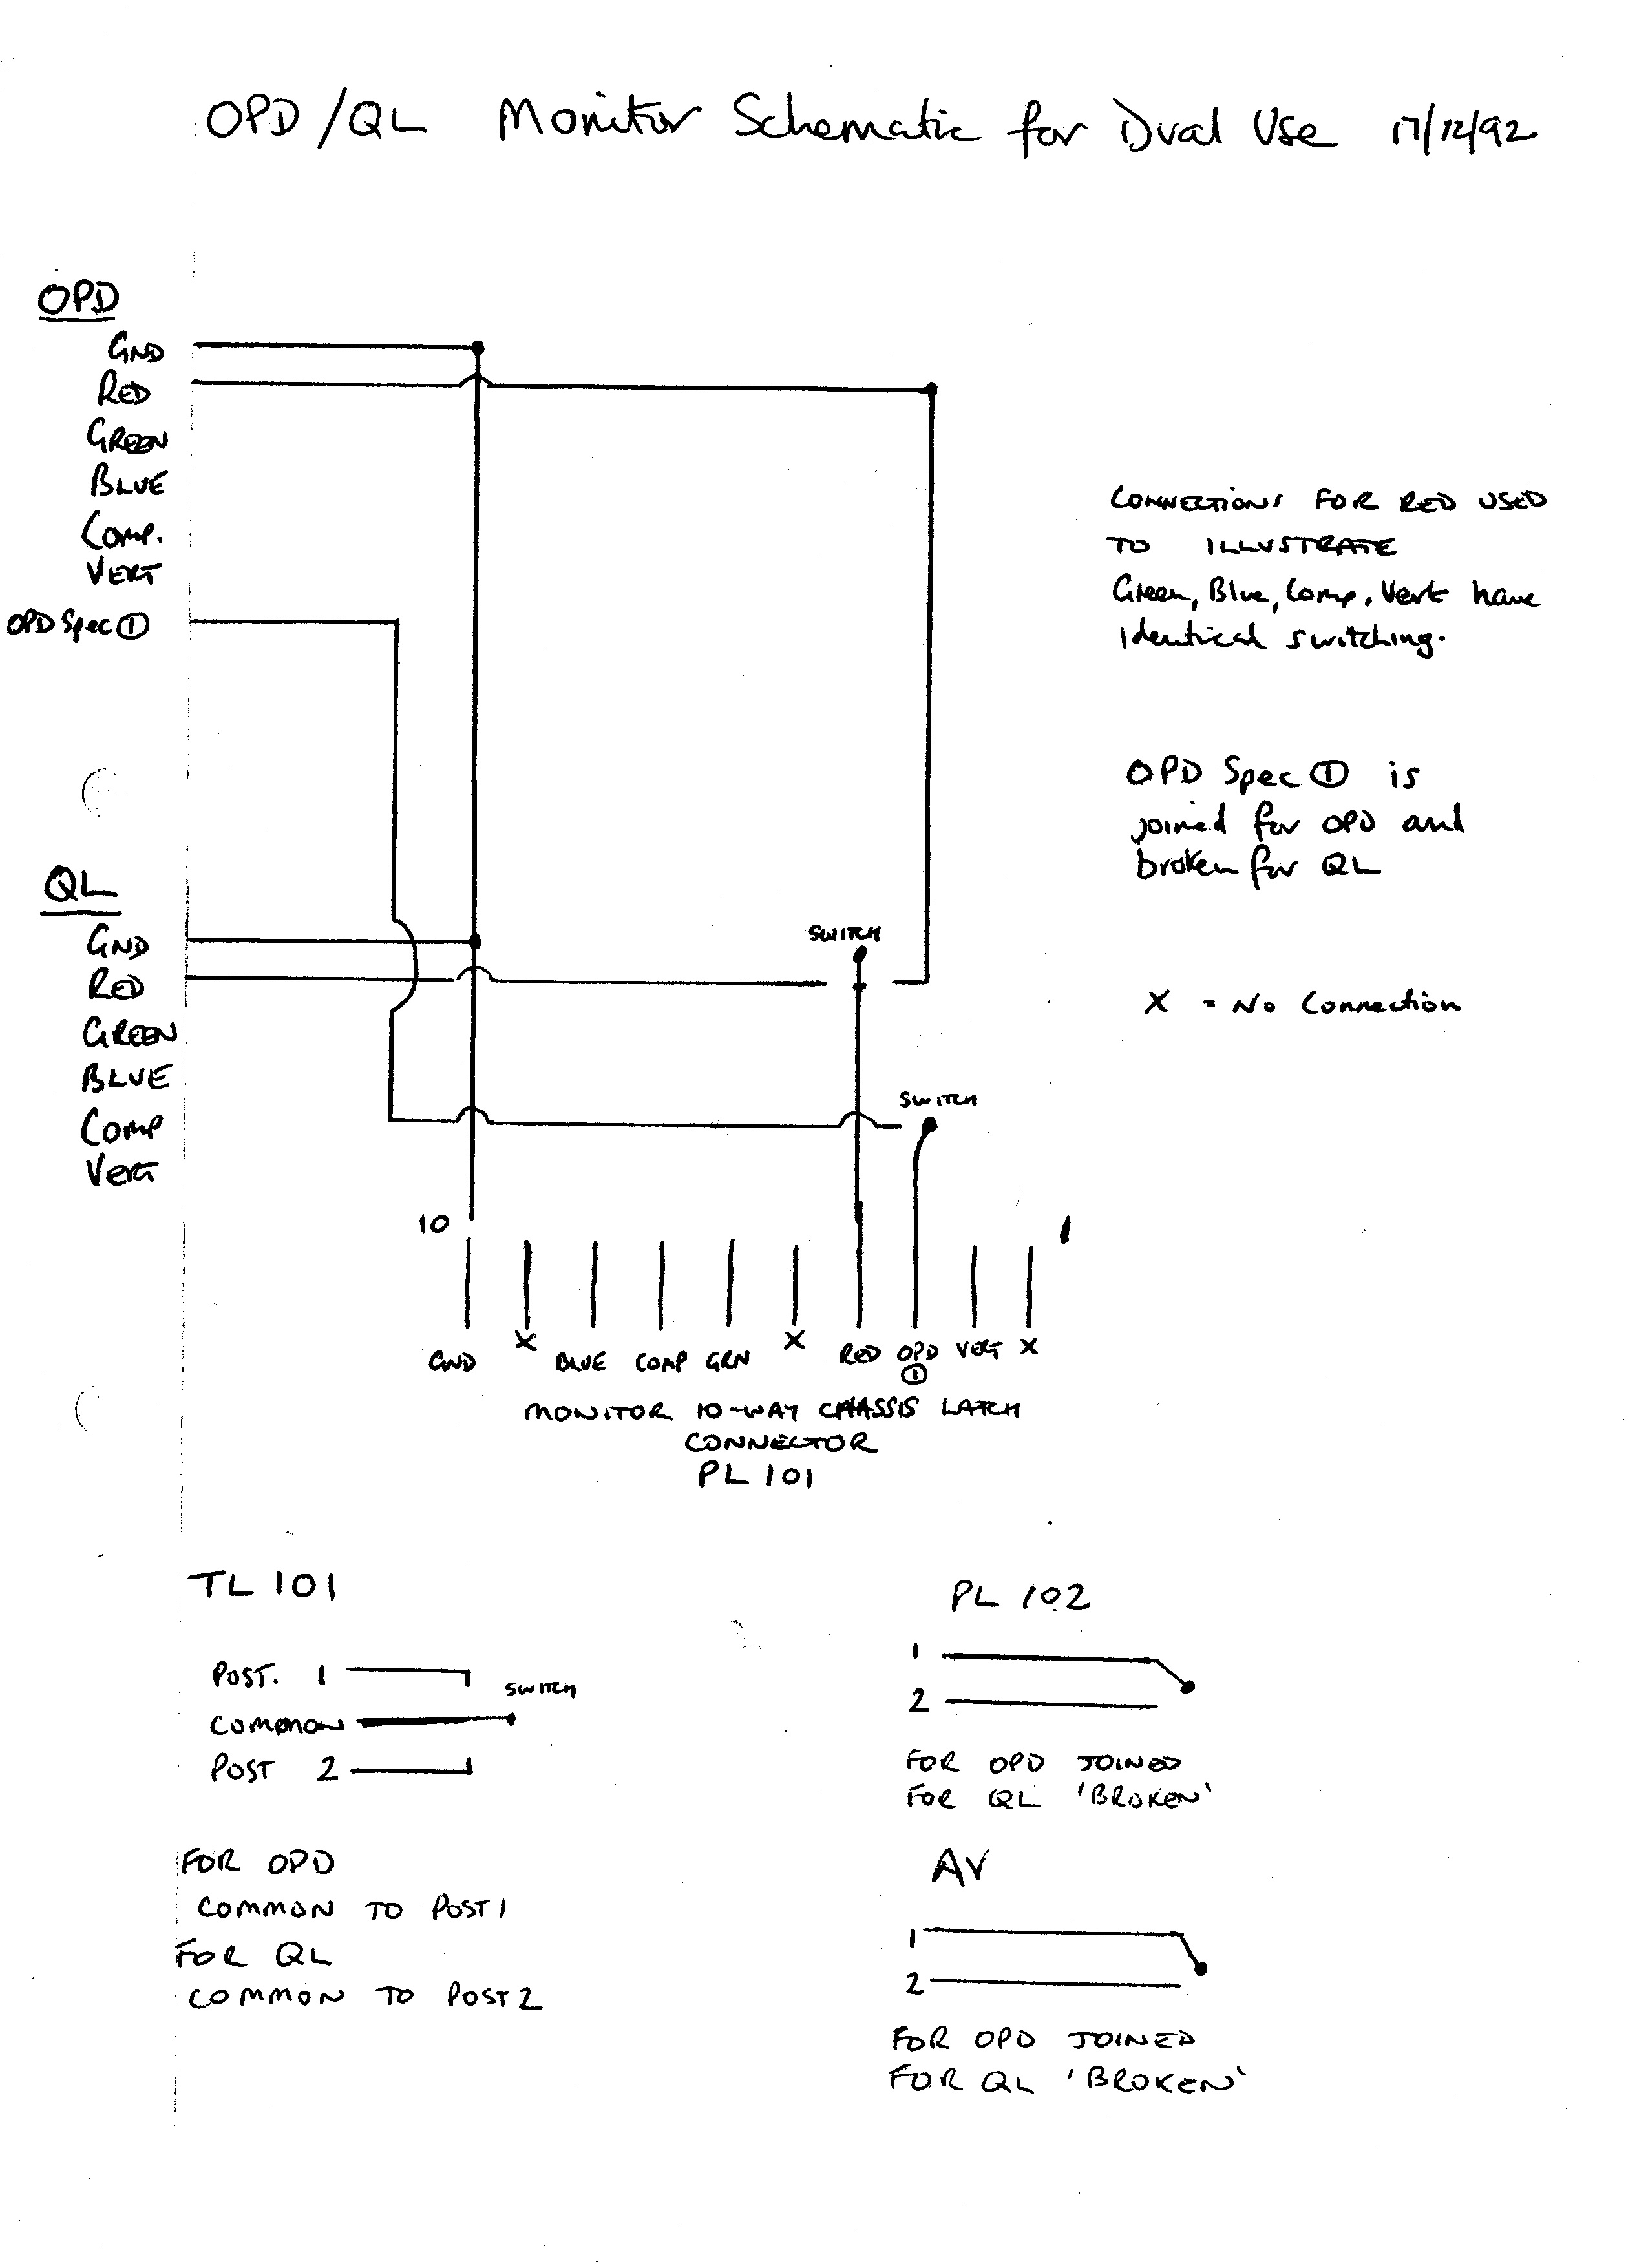 OPD/QL Monitor Schematic for Dual Use 17/12/92
OPD
GND
RED
GREEN
BLUE
Comp.
VERT
OPD Spec ①
CONNECTIONS FOR RED USED
TO ILLUSTRATE
Green, Blue, Comp, Vert have
identical switching.
OPD Spec ① is
joined for OPD and
broken for QL
X = No Connection
QL
GND
RED
GREEN
BLUE
Comp
Vert
SWITCH
SWITCH
10
1
GND X BLUE COMP GRN X RED OPD ① VERT X
MONITOR 10-WAY CHASSIS LATCH
CONNECTOR
PL 101
TL 101
POST. 1
SWITCH
COMMON
POST 2
FOR OPD
COMMON TO POST 1
FOR QL
COMMON TO POST 2
PL 102
1
2
FOR OPD JOINED
FOR QL 'BROKEN'
AV
1
2
FOR OPD JOINED
FOR QL 'BROKEN'